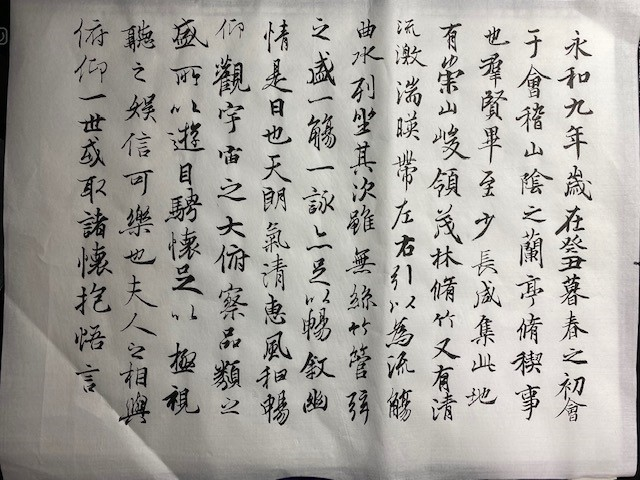 永和九年歲在癸丑暮春之初會
于會稽山陰之蘭亭脩稧事
也羣賢畢至少長咸集此地
有崇山峻領茂林脩竹又有清
流激湍暎帶左右引以為流觴
曲水列坐其次雖無絲竹管弦
之盛一觴一詠亦足以暢敘幽
情是日也天朗氣清惠風和暢
仰觀宇宙之大俯察品類之
盛所以遊目騁懷足以極視
聽之娛信可樂也夫人之相與
俯仰一世或取諸懷抱悟言